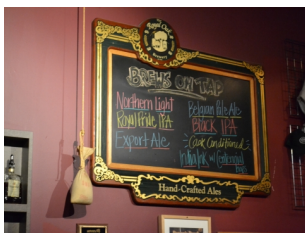 Royal Oak
BREWS ON TAP
Northern Light
Royal Pride IPA
Export Ale
Belgian Pale Ale
Black IPA
Cask Conditioned
India Ink w/
Hand-Crafted Ales